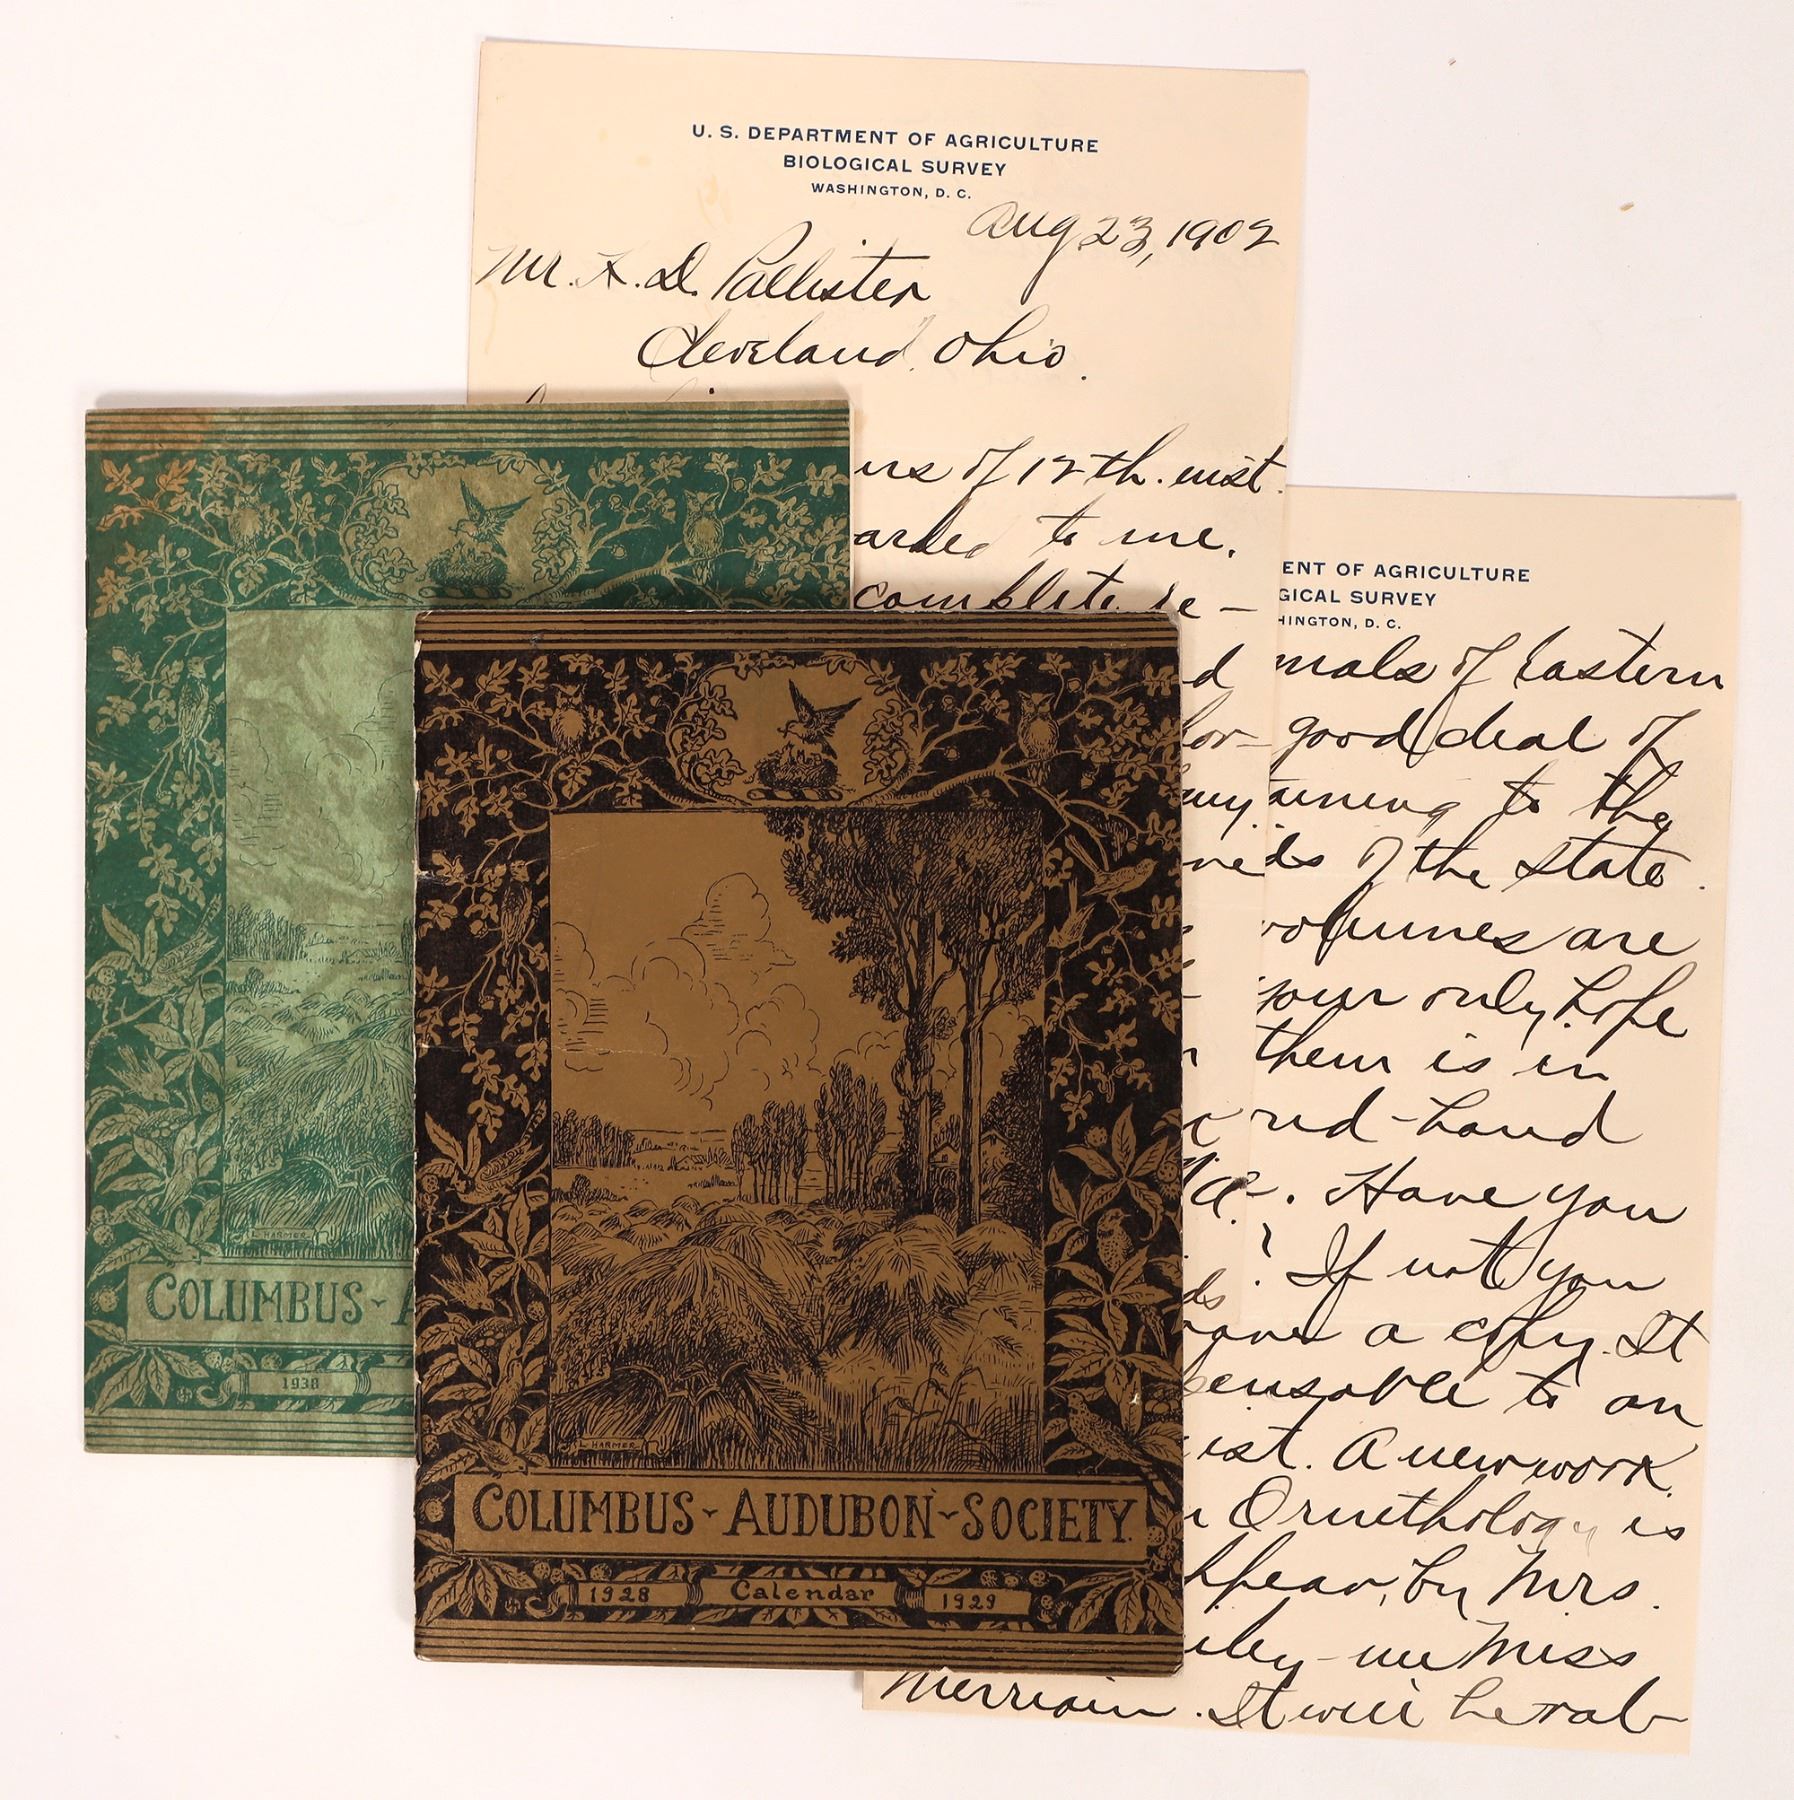 U. S. DEPARTMENT OF AGRICULTURE
BIOLOGICAL SURVEY
WASHINGTON, D. C.
Aug 23, 1902
Mr. A. D. Pallister,
Cleveland, Ohio.
urs of 12th. inst.
arded to me.
complete re-
d
for-
ENT OF AGRICULTURE
GICAL SURVEY
HINGTON, D. C.
mals of Eastern
good deal of
aining to the
of the state.
volumes are
your only hope
them is in
nd-hand
. Have you
? If not you
a copy. It
pensable to an
ist. A new work
n Ornithology is
ppear, by Mrs.
iley - nee Miss
Merriam. It will be val-
L. HARMER
COLUMBUS - A
1938
L. HARMER
COLUMBUS - AUDUBON - SOCIETY.
1928 Calendar 1929